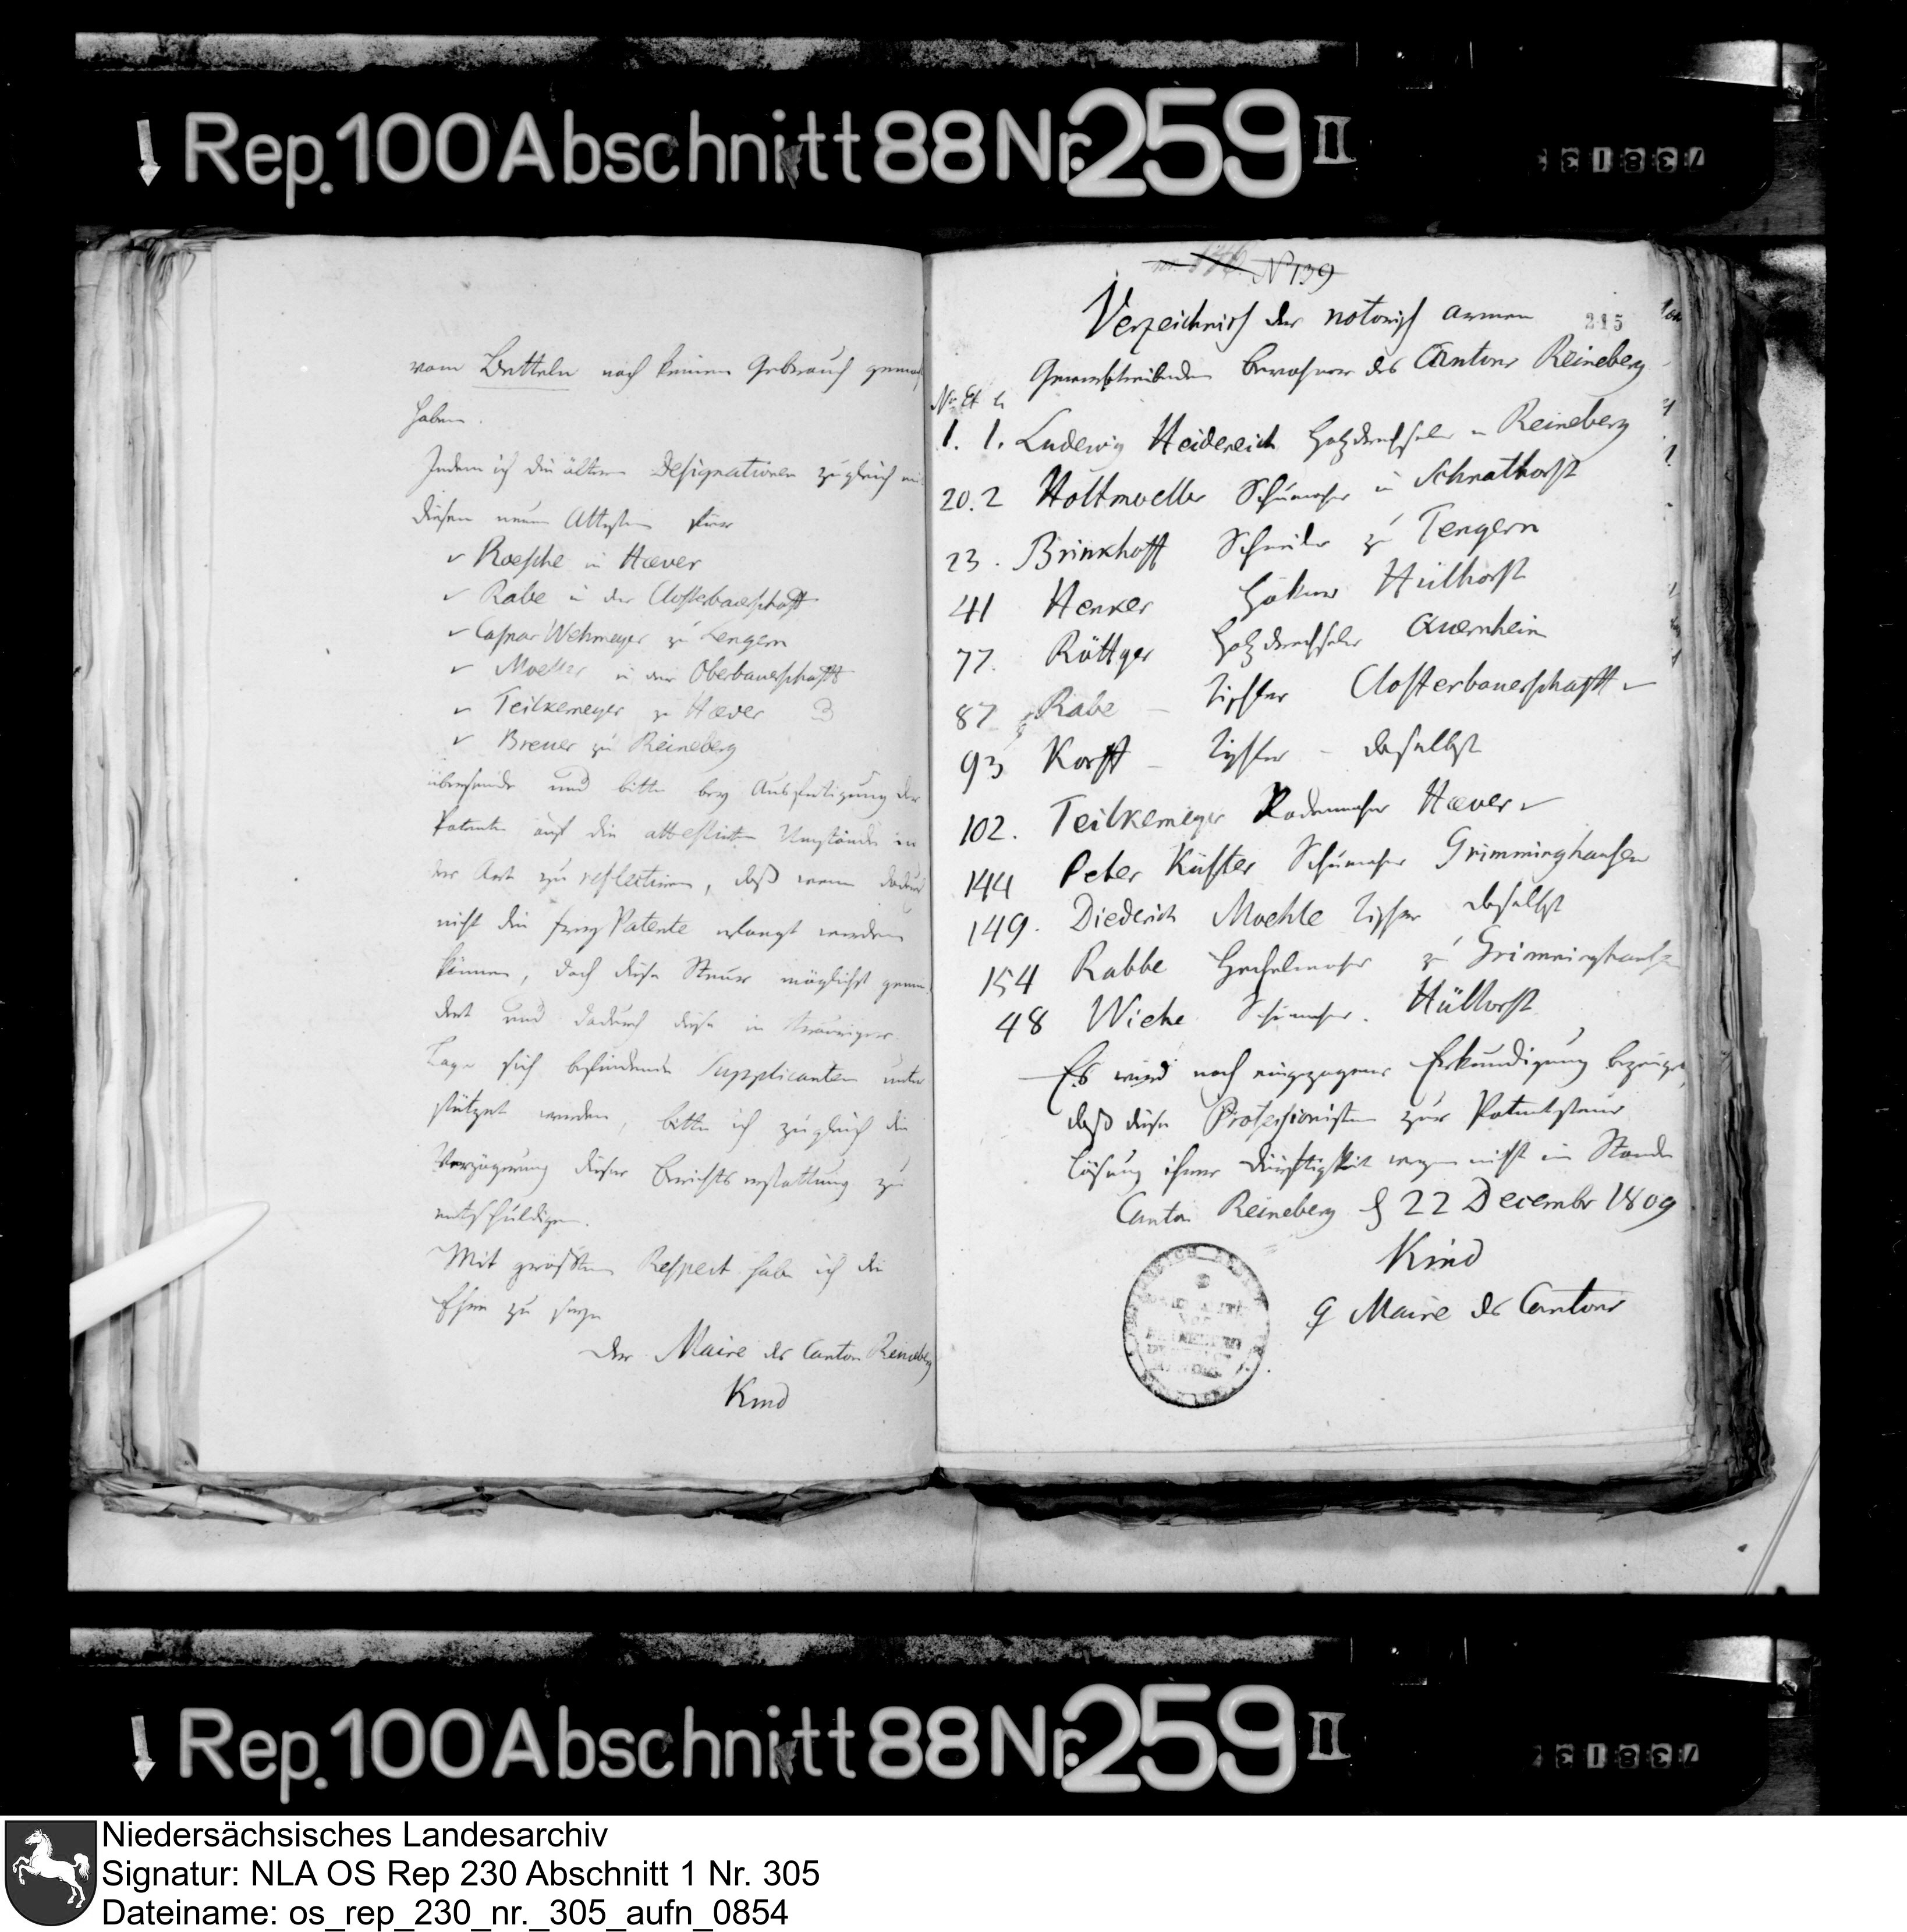 Rep. 100 Abschnitt 88 Nr. 259 II
73813
vom Betteln noch keinen Gebrauch gemacht
haben.
Indem ich die ältern Designationen zugleich mit
diesen neuen Attesten für
Roesche in Haever
Rabe in der Closterbauerschafft
Caspar Wehmeyer zu Tengern
Moeller in der Oberbauerschafft
Teilkemeyer zu Haever
Breuer zu Reineberg
übersende und bitte bey Ausfertigung der
Patente auf die attestirten Umstände in
der Art zu reflectiren, daß wenn dadurch
nicht die frey Patente erlangt werden
können, doch diese Steuer möglichst gemin
dert und dadurch diese in trauriger
Lage sich befindende Supplicanten unter
stützet werden, bitte ich zugleich die
Verzögerung dieser Berichtserstattung zu
entschuldigen.
Mit größten Respect habe ich die
Ehre zu seyn
Der Maire des Canton Reineberg
Kind
No 139
Verzeichniss der notorisch armen
315
Gewerbtreibenden Bewohner des Cantons Reineberg
1. 1. Ludewig Heidereich Holzdrechsler in Reineberg
20. 2 Holtmoeller Schumacher in Schnathorst
23. Brinkhoff Schneider zu Tengern
41 Henker Höker Hülhorst
77. Röttger Holzdrechsler Quernheim
87 Rabe – Tischler Closterbauerschafft
93 Korff – Tischler – daselbst
102. Teilkemeyer Rademacher Haever
144 Peter Küster Schumacher Grimminghausen
149. Diederich Moehle Tischler daselbst
154 Rabbe Hechelmacher zu Grimminghausen
48 Wiehe Schumacher. Hüllhorst
Es wird nach eingezogener Erkundigung bezeuget,
daß diese Professionisten zur Patentsteuer
Lösung ihrer Dürftigkeit wegen nicht im Stande
Canton Reineberg d 22 December 1809
Kind
Maire des Cantons
Rep. 100 Abschnitt 88 Nr. 259 II
73813
Niedersächsisches Landesarchiv
Signatur: NLA OS Rep 230 Abschnitt 1 Nr. 305
Dateiname: os_rep_230_nr._305_aufn_0854